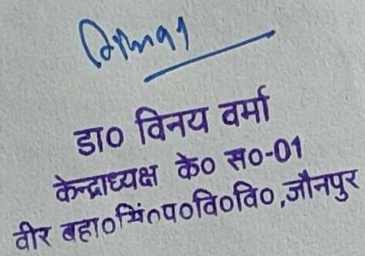 डा० विनय वर्मा
केन्द्राध्यक्ष के० स०-01
वीर बहा०सिं०प०वि०वि०,जौनपुर